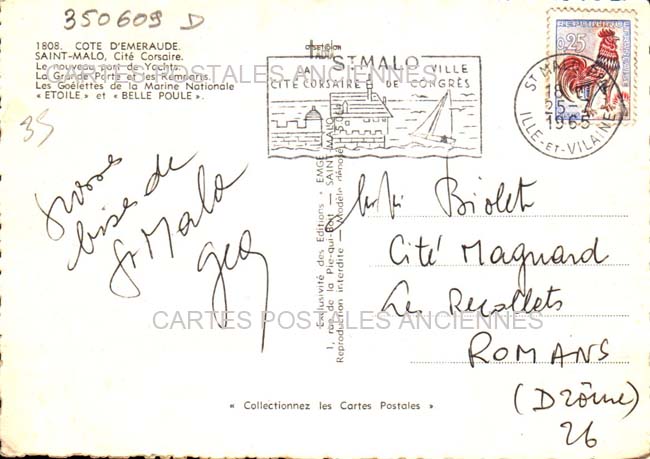 350609 D
1808. COTE D'EMERAUDE.
SAINT-MALO, Cité Corsaire.
Le nouveau port de Yachts.
La Grande Porte et les Remparts.
Les Goëlettes de la Marine Nationale
« ETOILE » et « BELLE POULE ».
35
ST MALO
CITÉ CORSAIRE
VILLE
DE CONGRÈS
0,25
ST MALO
18 H
25-7
1965
ILLE-ET-VILAINE
CARTES POSTALES ANCIENNES
Grosses
bises de
St Malo
Exclusivité des Editions
1, rue de la Pie-qui-Boit — SAINT-MALO
Reproduction interdite — Modèle déposé
Biolet
Cité Magnard
Les Recollets
ROMANS
(Drôme)
26
CARTES POSTALES ANCIENNES
« Collectionnez les Cartes Postales »